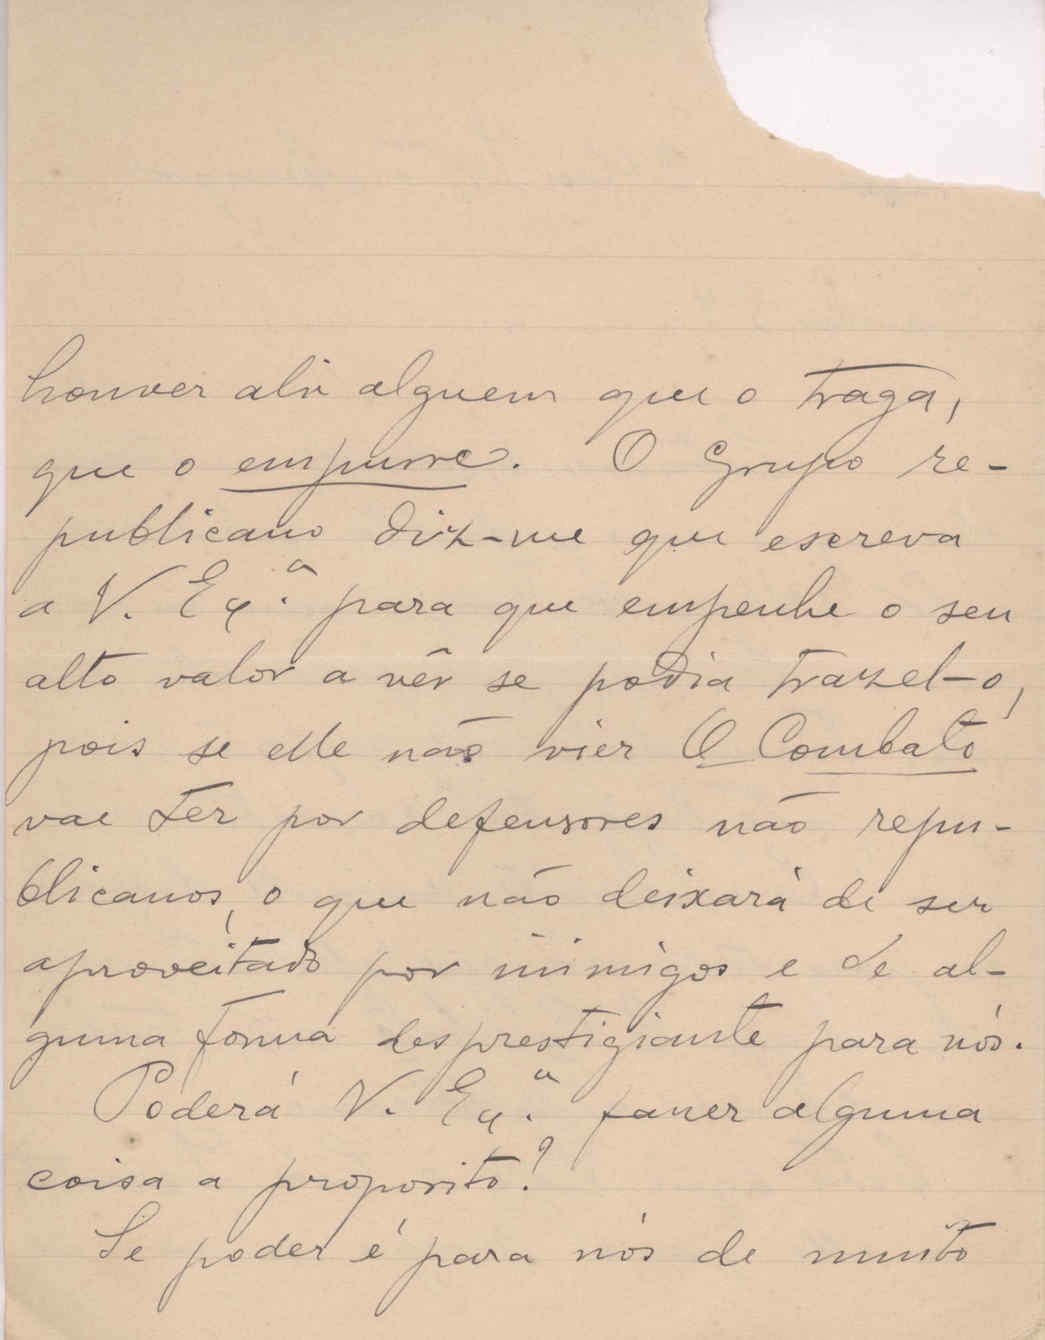 houver ahi alguem que o traga,
que o empurre. O Grupo re-
publicano diz-me que escreva
a V. Ex.ª para que empenhe o seu
alto valor a vêr se podia trazel-o,
pois se elle não vier O Combate
vae ter por defensores não repu-
blicanos, o que não deixará de ser
aproveitado por inimigos e de al-
guma forma desprestigiante para nós.
Poderá V. Ex.ª fazer alguma
coisa a proposito?
Se poder é para nós de muito